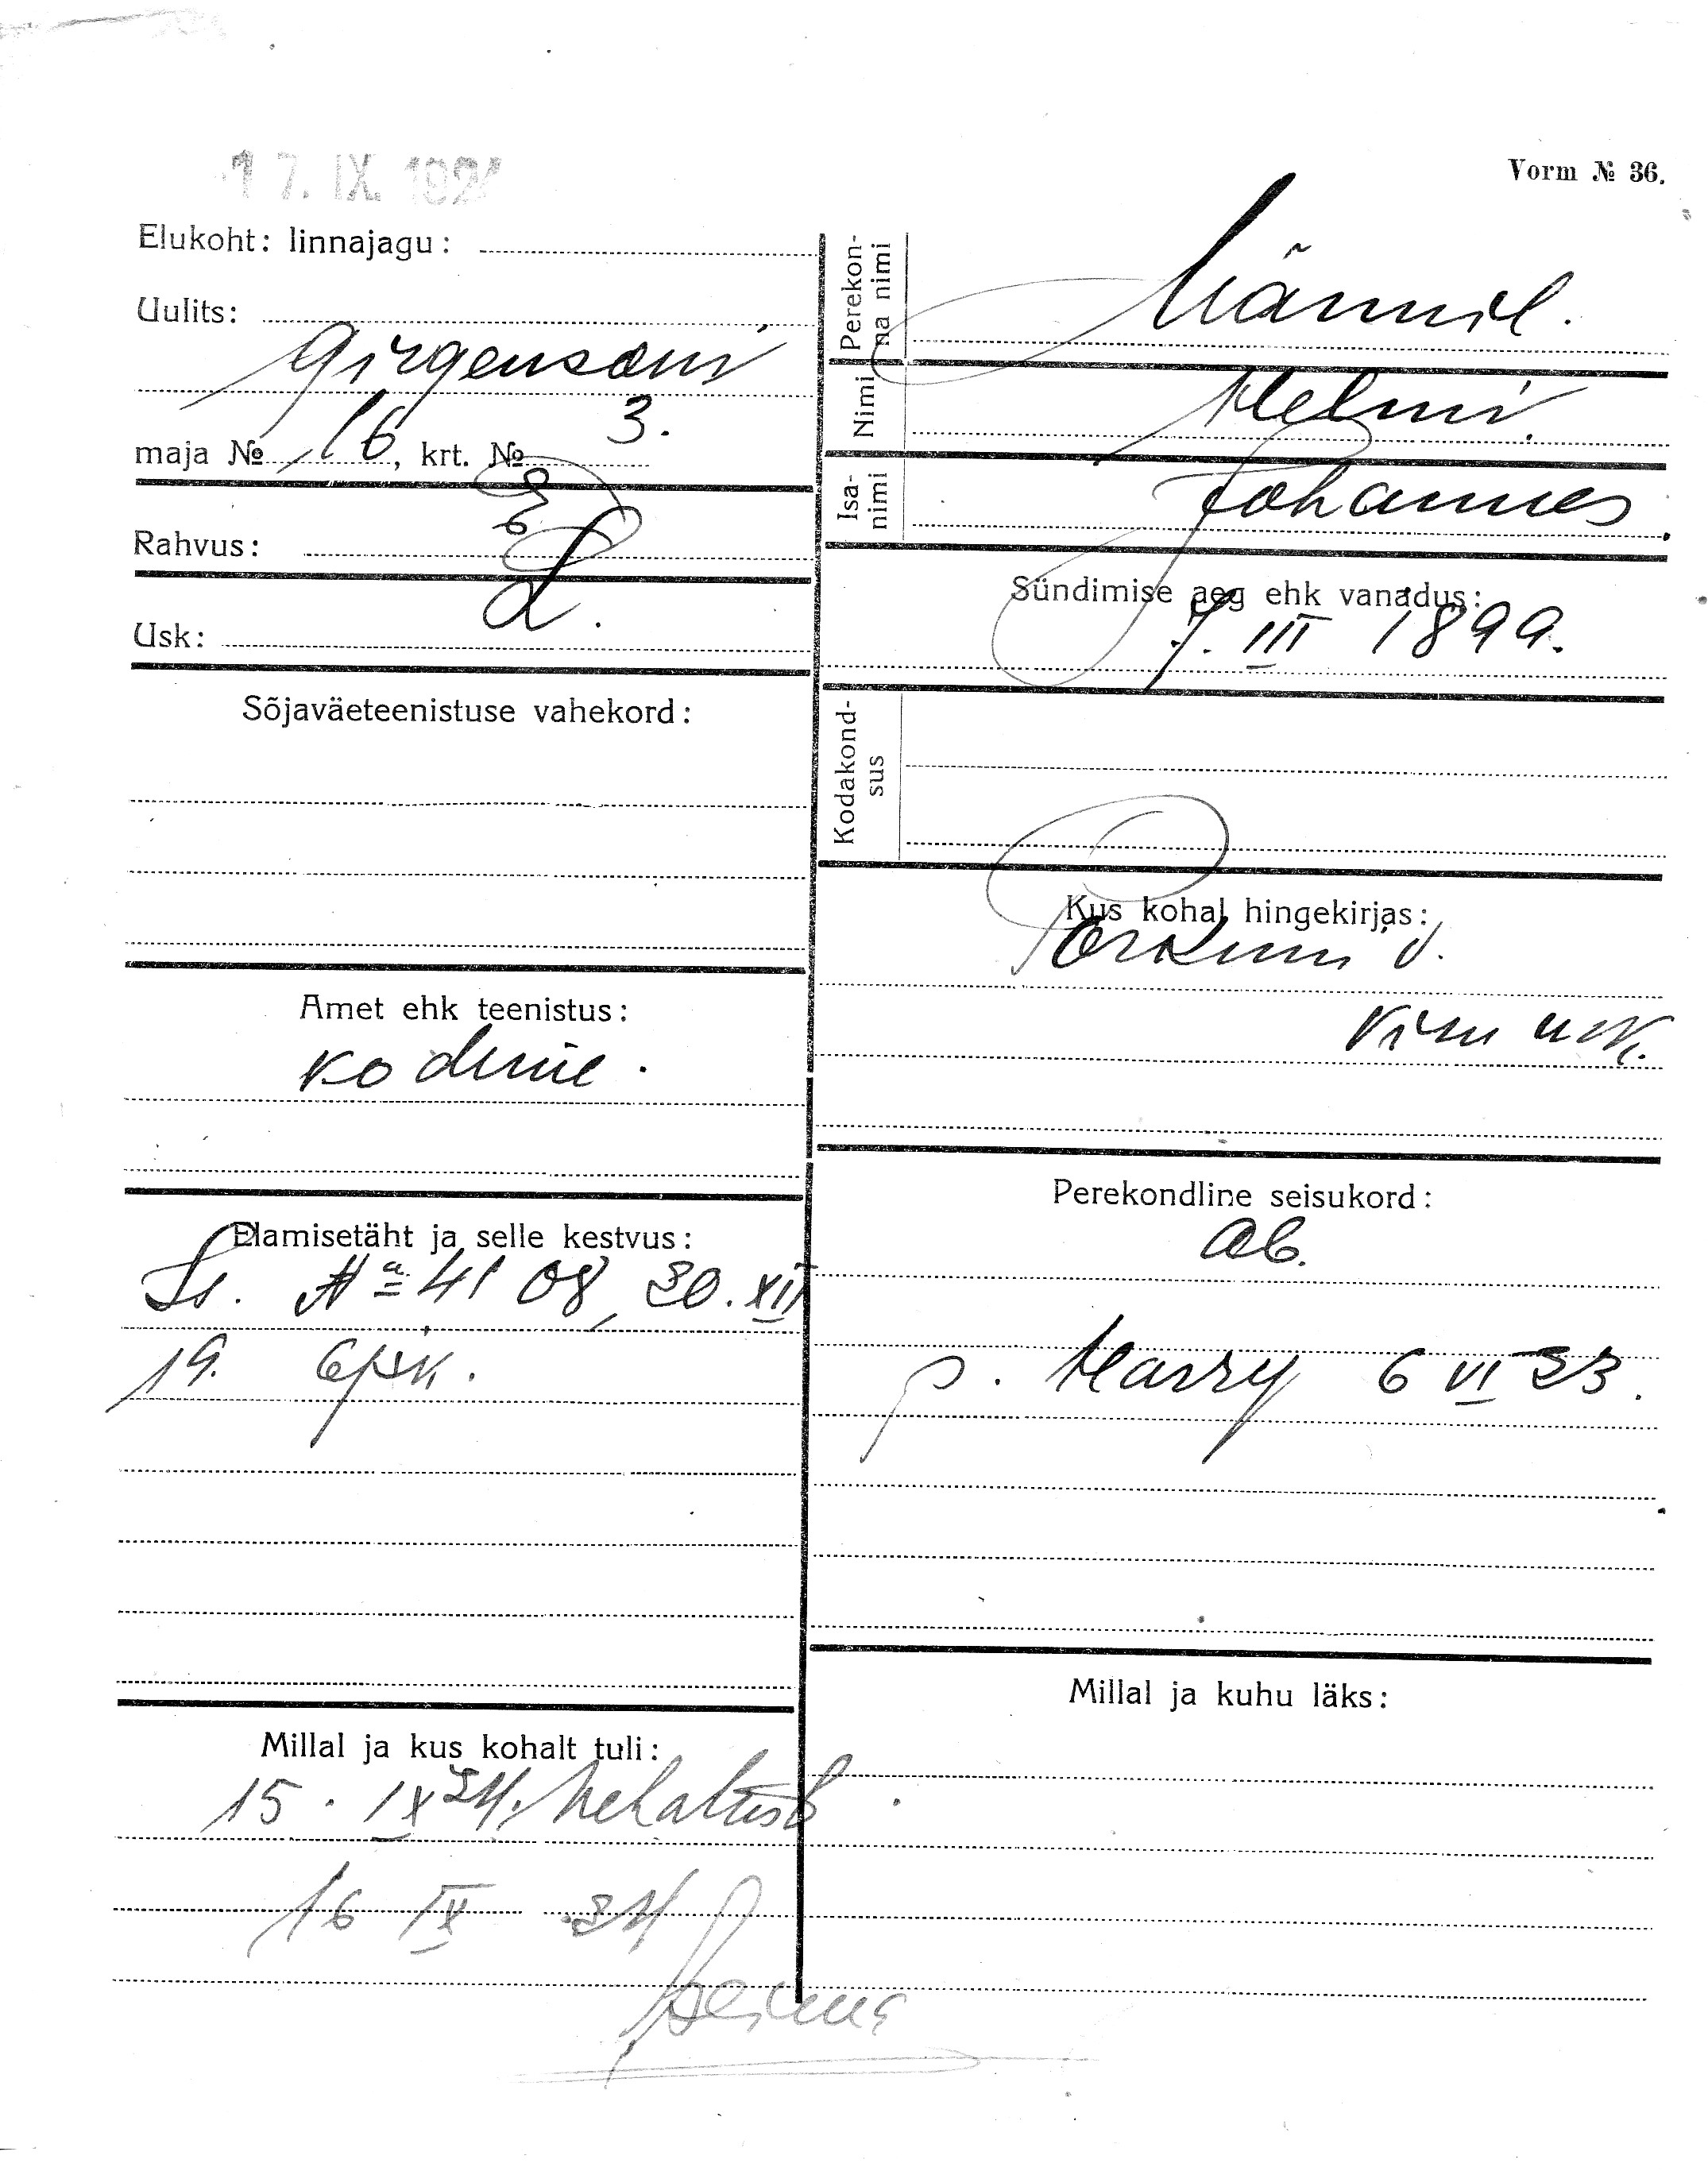 17. IX. 192
Vorm № 36.
Elukoht: linnajagu:
Uulits:
Girgensoni
maja № 16, krt. № 3.
Rahvus: E
Usk: L.
Sõjaväeteenistuse vahekord:
Amet ehk teenistus:
kodune.
Elamisetäht ja selle kestvus:
Is. A 4108, 30. XII
19. apk.
Millal ja kus kohalt tuli:
15. IX 24.
16 IX 24
Perekon-
na nimi
Männik.
Nimi
Helmi.
Isa-
nimi
Johannes.
Sündimise aeg ehk vanadus:
7. III 1899.
Kodakond-
sus
Kus kohal hingekirjas:
Porkuni v.
Viru mk.
Perekondline seisukord:
ab.
p. Harry 6 VI 23.
Millal ja kuhu läks: